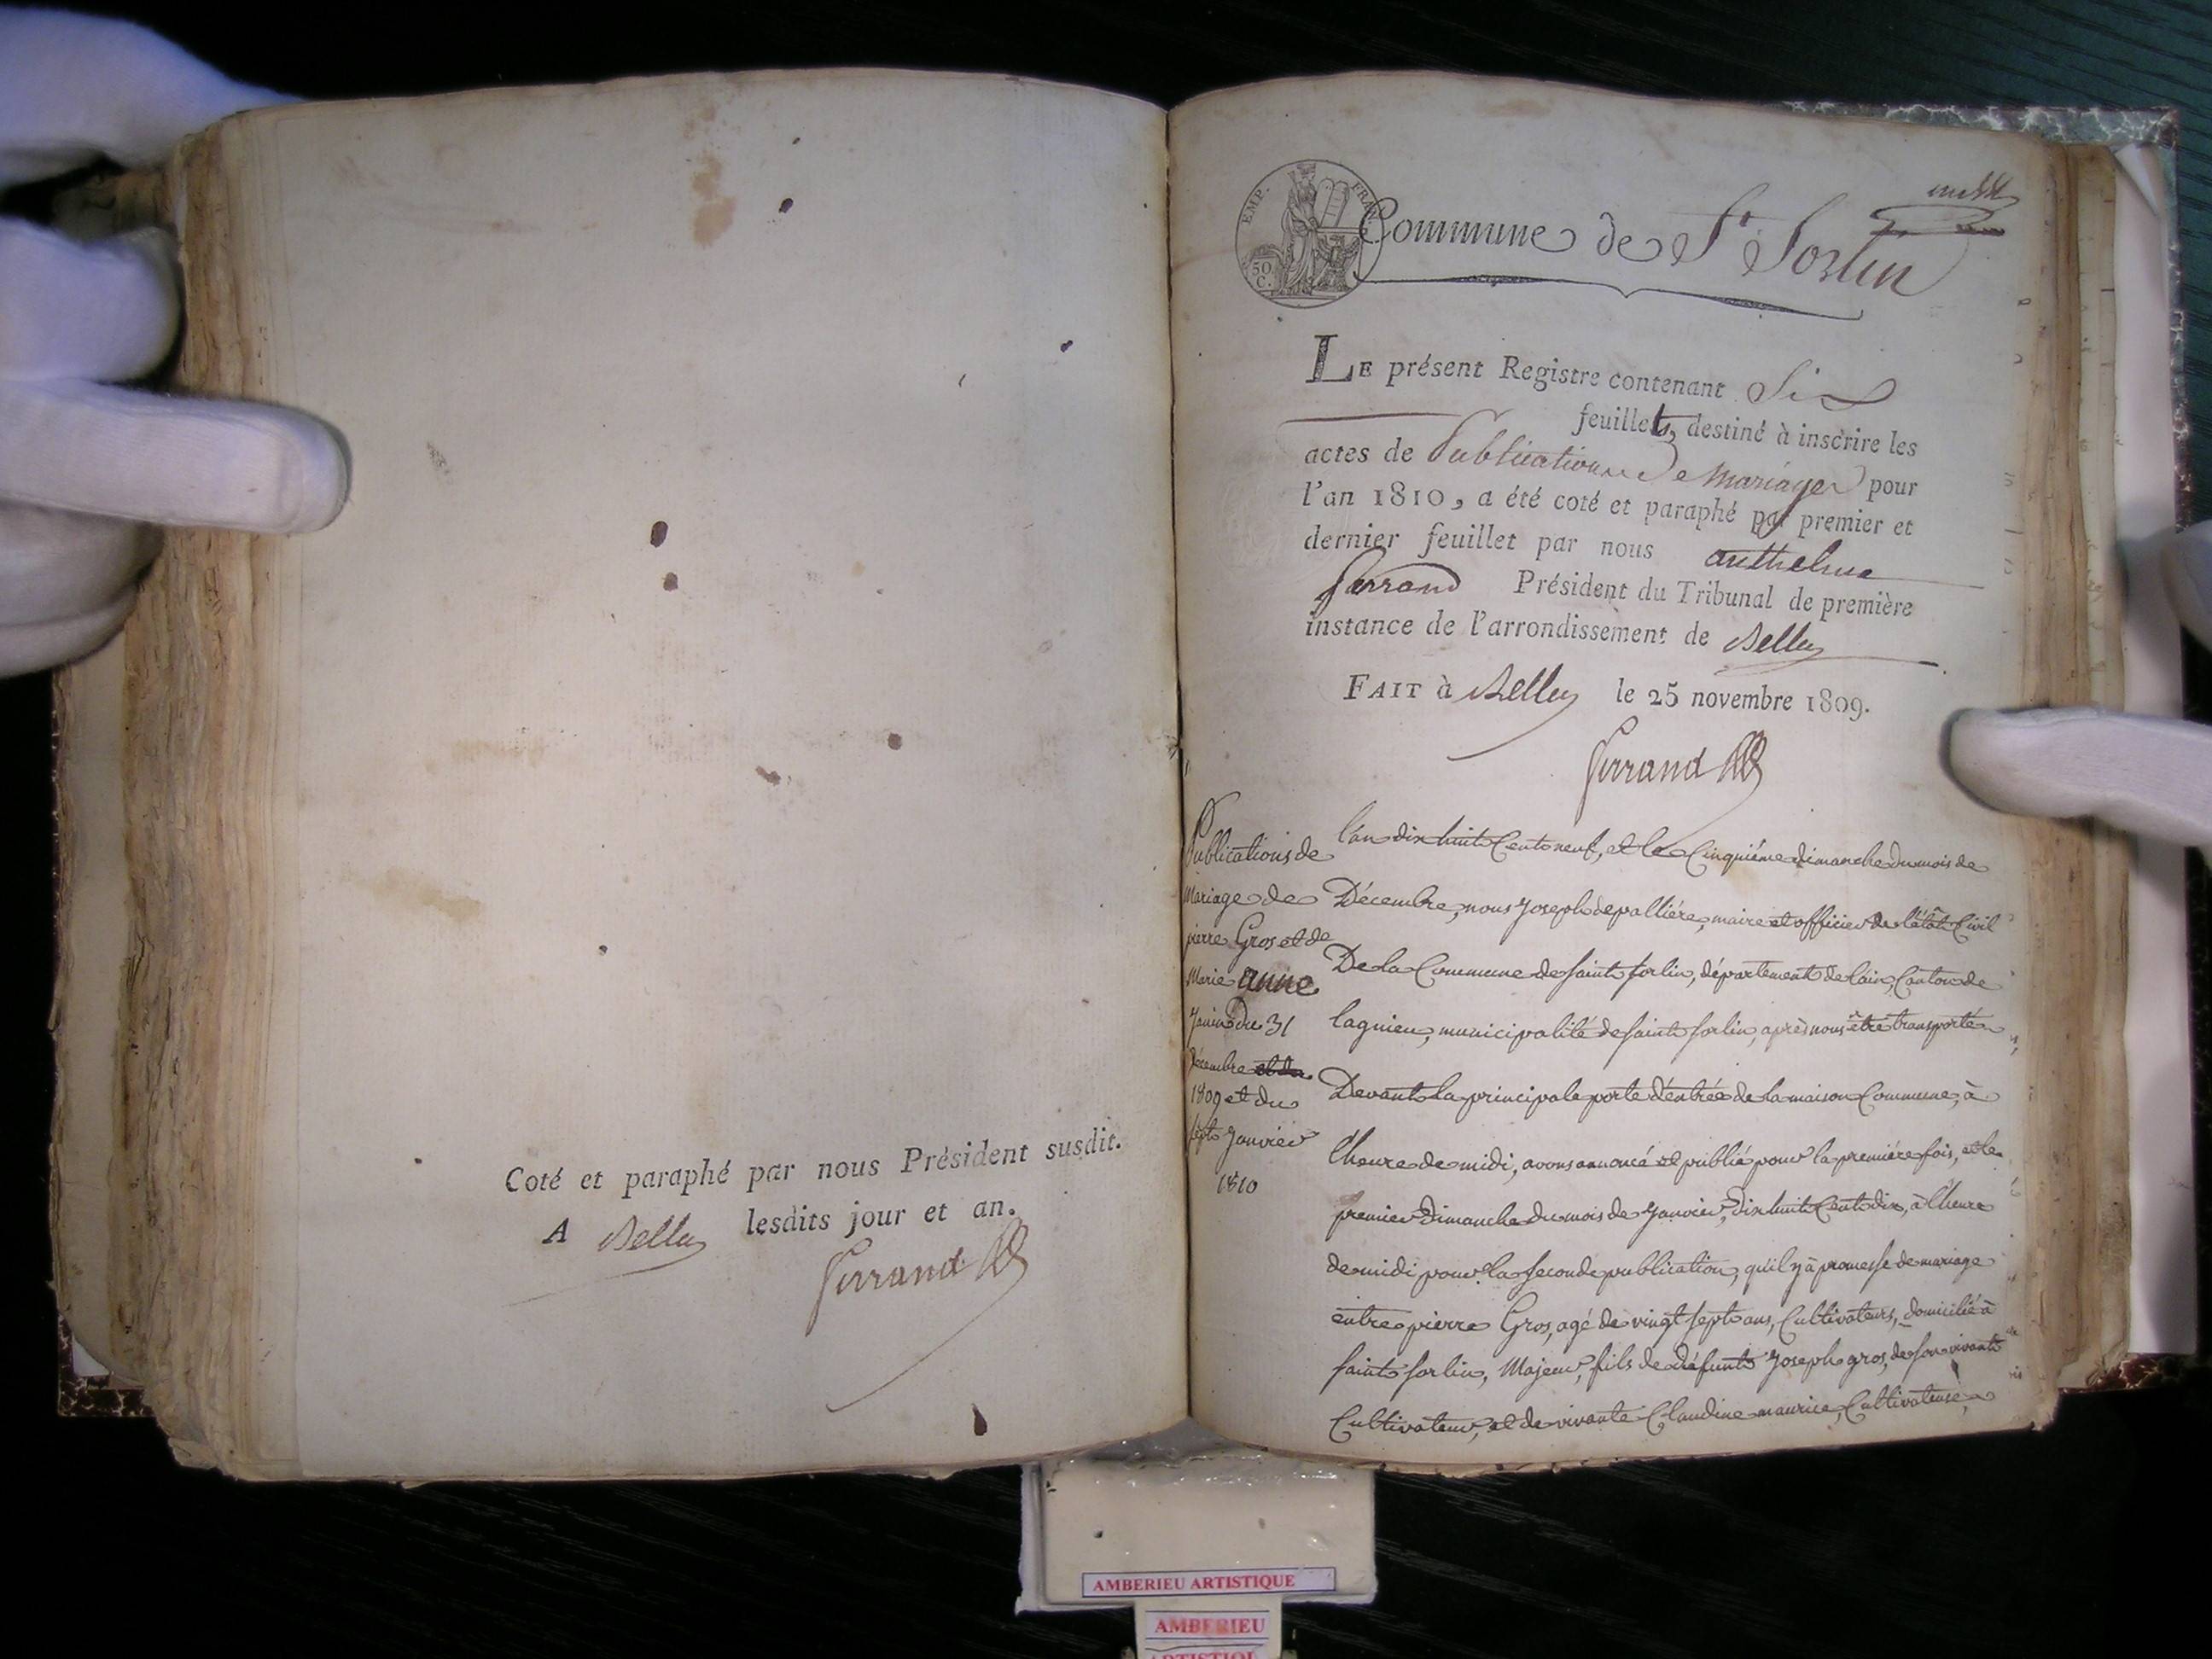 Coté et paraphé par nous Président susdit.
A Belley lesdits jour et an.
Ferrand
EMP. FRAN.
50 C.
Commune de St Sorlin
LE présent Registre contenant Six
feuillets, destiné à inscrire les
actes de Publication de Mariages pour
l'an 1810, a été coté et paraphé par premier et
dernier feuillet par nous anthelme
ferrand Président du Tribunal de première
instance de l'arrondissement de Belley
FAIT à Belley le 25 novembre 1809.
Ferrand
Publications de
Mariage de
pierre Gros et de
Marie anne
Janin du 31
décembre et du
1809 et du
sept Janvier
1810
l'an dix huit Cent neuf, et le Cinquiéme dimanche du mois de
Décembre, nous Joseph depalliére, maire et officier de l'état Civil
De la Commune de saint sorlin, département de lain, Canton de
lagnieu, municipalité de saint sorlin, après nous être transporté
Devant la principale porte d'entrée de la maison Commune, à
l'heure de midi, avons annoncé et publié pour la premiére fois, et le
premier Dimanche du mois de Janvier, dix huit Cent dix, à l'heure
de midi pour la seconde publication, qu'il y à promesse de mariage
entre pierre Gros, agé de vingt sept ans, Cultivateurs, domicilié à
saint sorlin, Majeur, fils de défunt Joseph gros, de son vivant
Cultivateur, et de vivante Claudine maurice, Cultivateuse,
AMBERIEU ARTISTIQUE
AMBERIEU
ARTISTIQUE